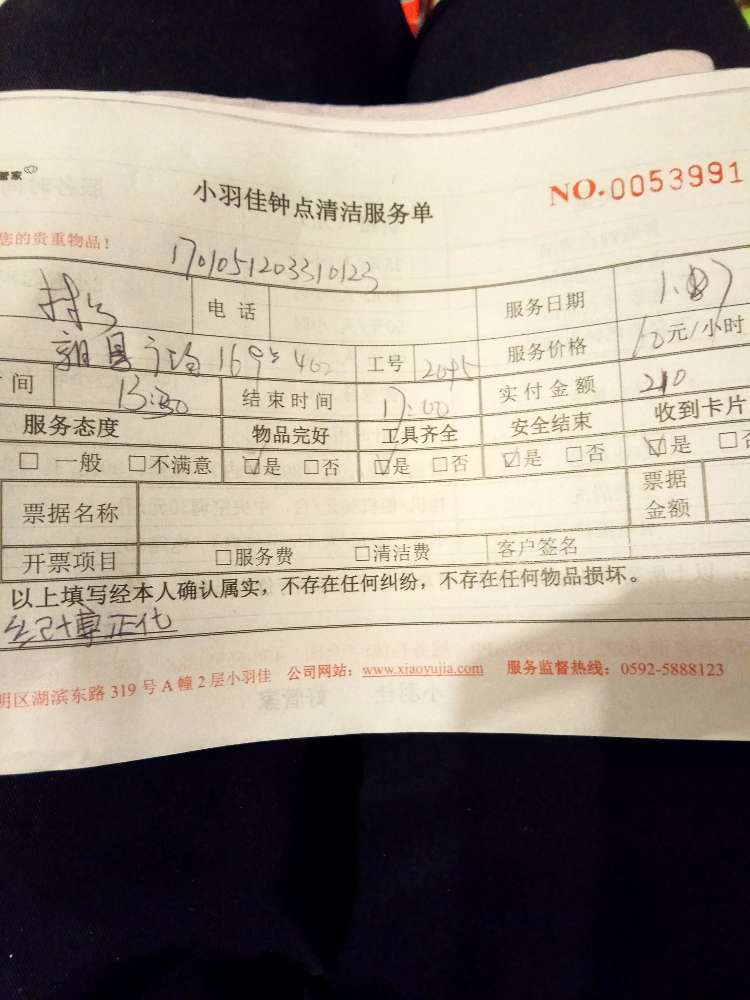 管家
小羽佳钟点清洁服务单
NO.0053991
您的贵重物品!
1701051203310123
电话 服务日期 1.
169 402 工号 2095 服务价格 元/小时
间 13:30 结束时间 17:00 实付金额 210
服务态度 物品完好 工具齐全 安全结束 收到卡片
□ 一般 □不满意 ☑是 □否 ☑是 □否 ☑是 □否 ☑是 □
票据名称 票据金额
开票项目 □服务费 □清洁费 客户签名
以上填写经本人确认属实，不存在任何纠纷，不存在任何物品损坏。
明区湖滨东路 319 号 A 幢 2 层小羽佳 公司网站：www.xiaoyujia.com 服务监督热线：0592-5888123